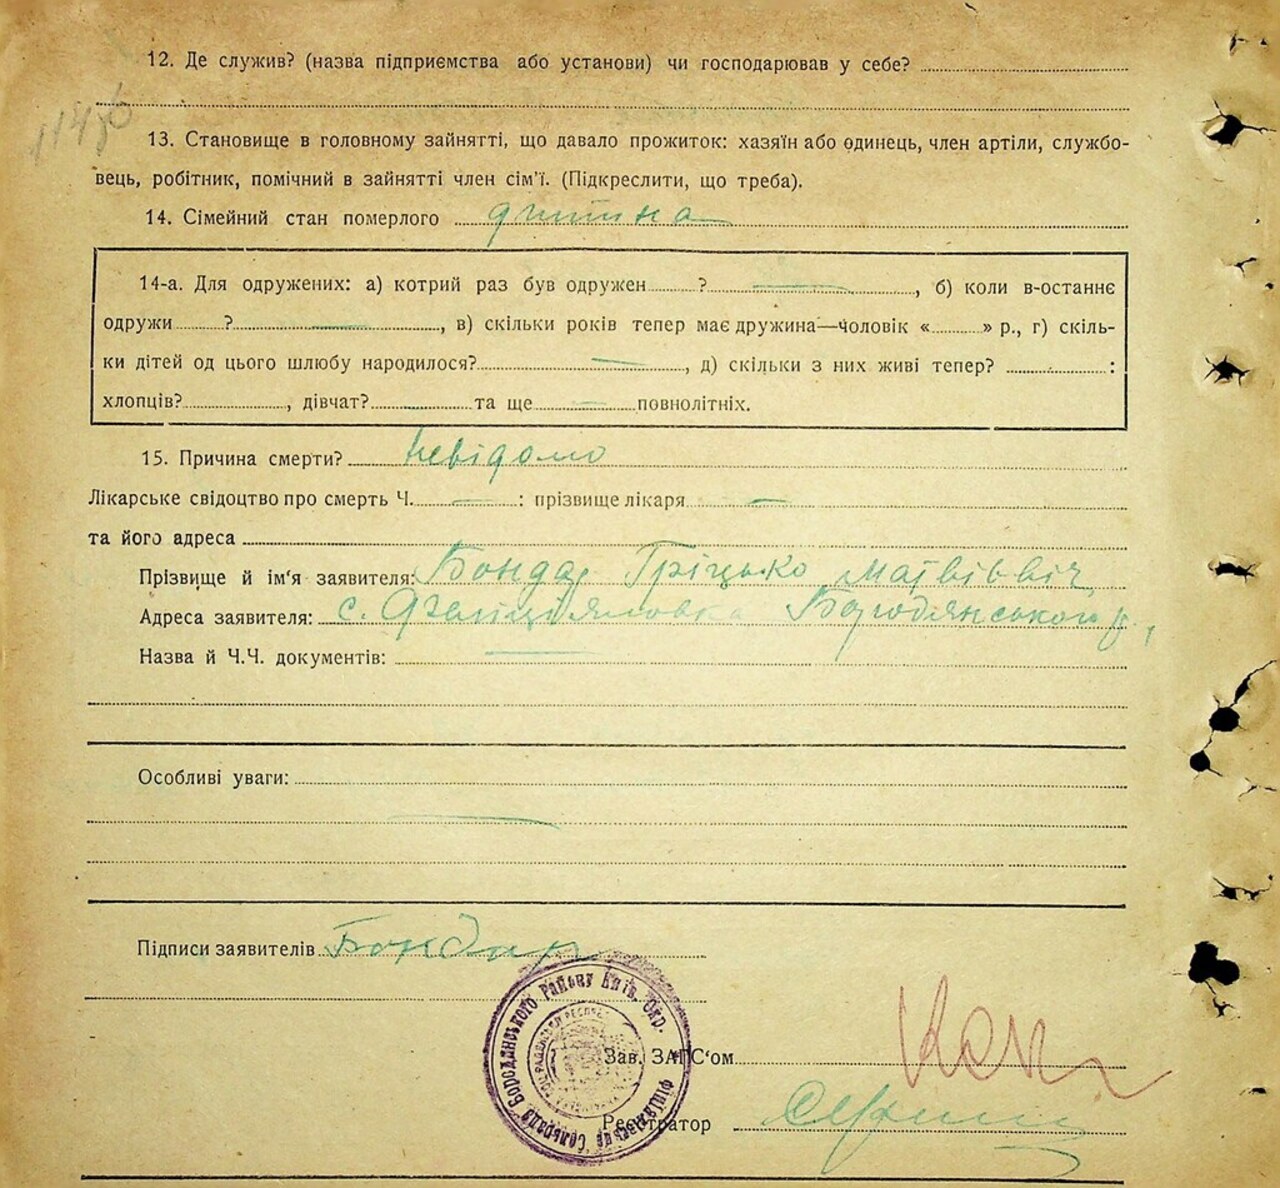 12. Де служив? (назва підприємства або установи) чи господарював у себе?
13. Становище в головному зайнятті, що давало прожиток: хазяїн або одинець, член артілі, службо-
вець, робітник, помічний в зайнятті член сім'ї. (Підкреслити, що треба).
14. Сімейний стан померлого дитина
14-а. Для одружених: а) котрий раз був одружен ?, б) коли в-останнє
одружи ?, в) скільки років тепер має дружина—чоловік « » р., г) скіль-
ки дітей од цього шлюбу народилося?, д) скільки з них живі тепер? :
хлопців?, дівчат? та ще повнолітніх.
15. Причина смерти? невідомо
Лікарське свідоцтво про смерть Ч. : прізвище лікаря
та його адреса
Прізвище й ім'я заявителя: Бондар Гріцько Матвієвіч
Адреса заявителя: с. Бородянського р.
Назва й Ч.Ч. документів:
Особливі уваги:
Підписи заявителів Бондар
Бородянського Району Київ. Окр.
Зав. ЗАГС'ом
Реєстратор